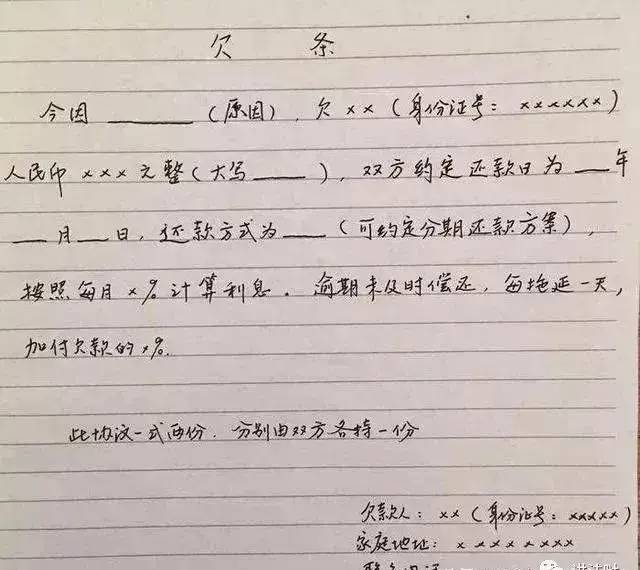 欠 条
今因______(原因),欠××(身份证号:××××××)
人民币×××元整(大写____),双方约定还款日为___年
___月___日,还款方式为____(可约定分期还款方案),
按照每月×%计算利息。逾期未及时偿还,每拖延一天,
加付欠款的×%.
此协议一式两份.分别由双方各持一份
欠款人:××(身份证号:×××××)
家庭地址:××××××××